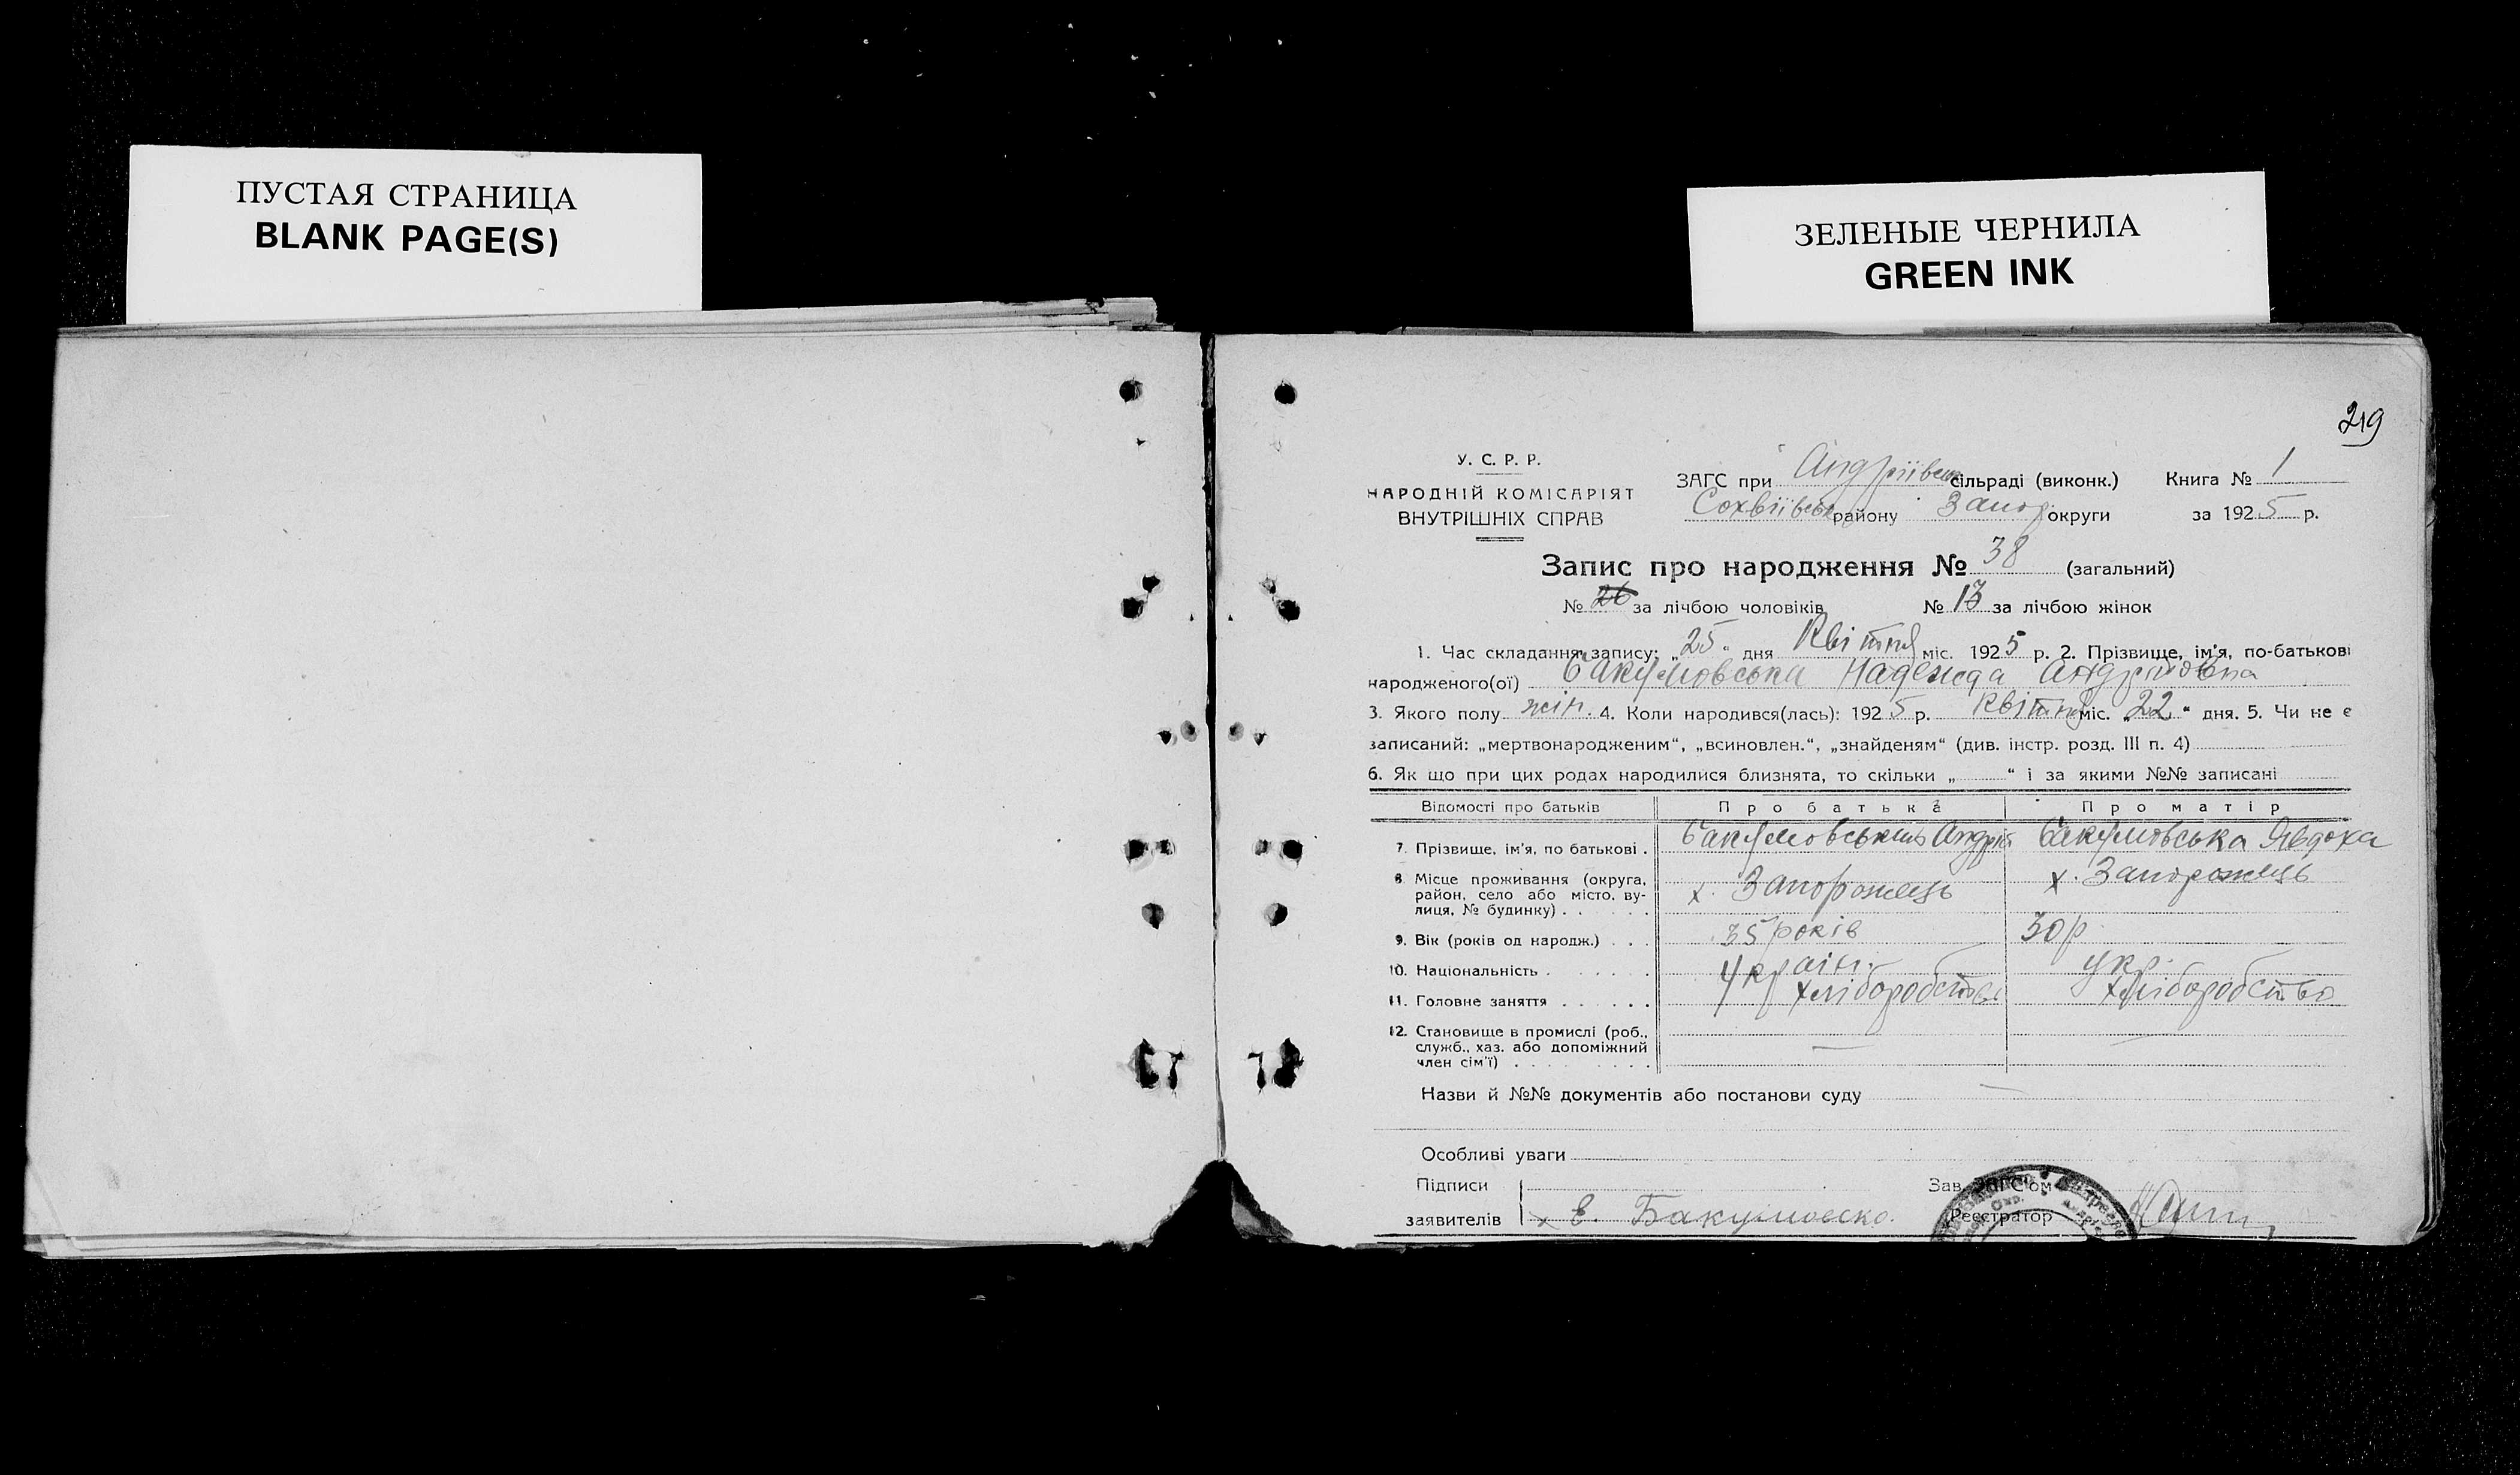 ПУСТАЯ СТРАНИЦА
BLANK PAGE(S)
ЗЕЛЕНЫЕ ЧЕРНИЛА
GREEN INK
219
У. С. Р. Р.
НАРОДНІЙ КОМІСАРІЯТ
ВНУТРІШНІХ СПРАВ
ЗАГС при Андріївськ сільраді (виконк.) Книга № 1
Софіївськ району Запор округи за 1925 р.
Запис про народження № 38 (загальний)
№ 26 за лічбою чоловіків № 13 за лічбою жінок
1. Час складання запису: „25“ дня Квітня міс. 1925 р. 2. Прізвище, ім'я, по-батькові
народженого(ої) Бакумовська Надежда Андріївна
3. Якого полу жін. 4. Коли народився(лась): 1925 р. Квітня міс. „22“ дня. 5. Чи не є
записаний: „мертвонародженим“, „всиновлен.“, „знайденям“ (див. інстр. розд. III п. 4)
6. Як що при цих родах народилися близнята, то скільки „ “ і за якими №№ записані
Відомості про батьків Про батька Про матір
7. Прізвище, ім'я, по батькові . Бакумовський Андрій Бакумовська Явдоха
8. Місце проживання (округа, район, село або місто, ву-
лиця, № будинку) . . . . х. Запорожець х. Запорожець
9. Вік (років од народж.) . . . 35 років 30 р.
10. Національність . . . . . . Україн. укр.
11. Головне заняття . . . . . . хліборобство хліборобство
12. Становище в промислі (роб.,
служб., хаз. або допоміжний
член сім'ї) . . . . . . . . . — —
Назви й №№ документів або постанови суду —
Особливі уваги
Підписи Зав. ЗАГС'ом
заявителів х Є. Бакумовско. Реєстратор